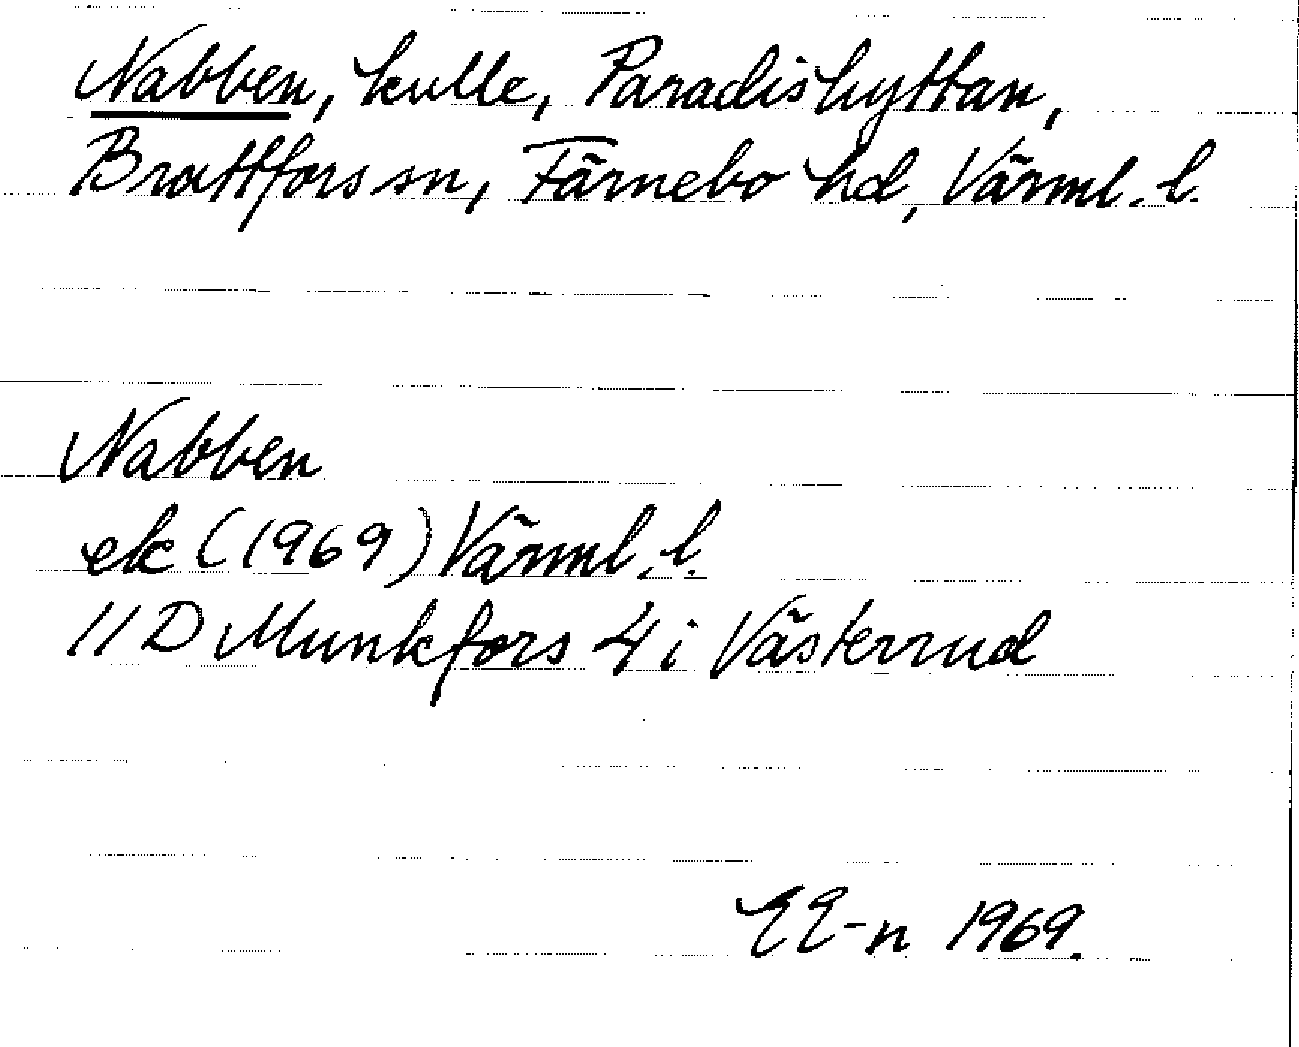 Nabben, kulle, Paradishyttan,
Brattfors sn, Färnebo hd, Värml. l.
Nabben
ek (1969) Värml. l.
11 D Munkfors 4 i Västerrud
EE-n 1969.